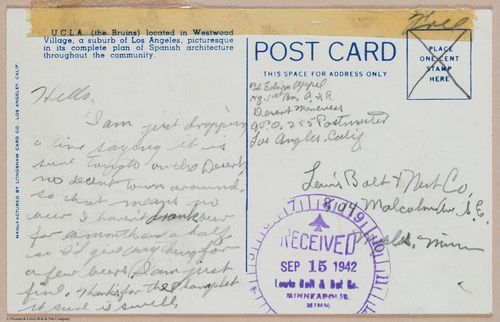 U.C.L.A. (the Bruins) located in Westwood
Village, a suburb of Los Angeles, picturesque
in its complete plan of Spanish architecture
throughout the community.
MANUFACTURED BY LONGSHAW CARD CO. LOS ANGELES, CALIF.
Hello,
I am just dropping
a line saying it is
sure tough on the Desert
no decent towns around,
so that means no
beer I haven't drank beer
for a month an a half
so I'd give anything for
a few beers. I am just
fine. Thanks for the
it sure is swell.
POST CARD
THIS SPACE FOR ADDRESS ONLY
Free
PLACE
ONE CENT
STAMP
HERE
Appel
Desert Maneuvers
A.P.O. 255 Postmaster
Los Angles. Calif
Lewis Bolt & Nut Co,
Malcolm Ave S.E.
Mpls, Minn
RECEIVED
SEP 15 1942
Lewis Bolt & Nut Co.
MINNEAPOLIS,
MINN.